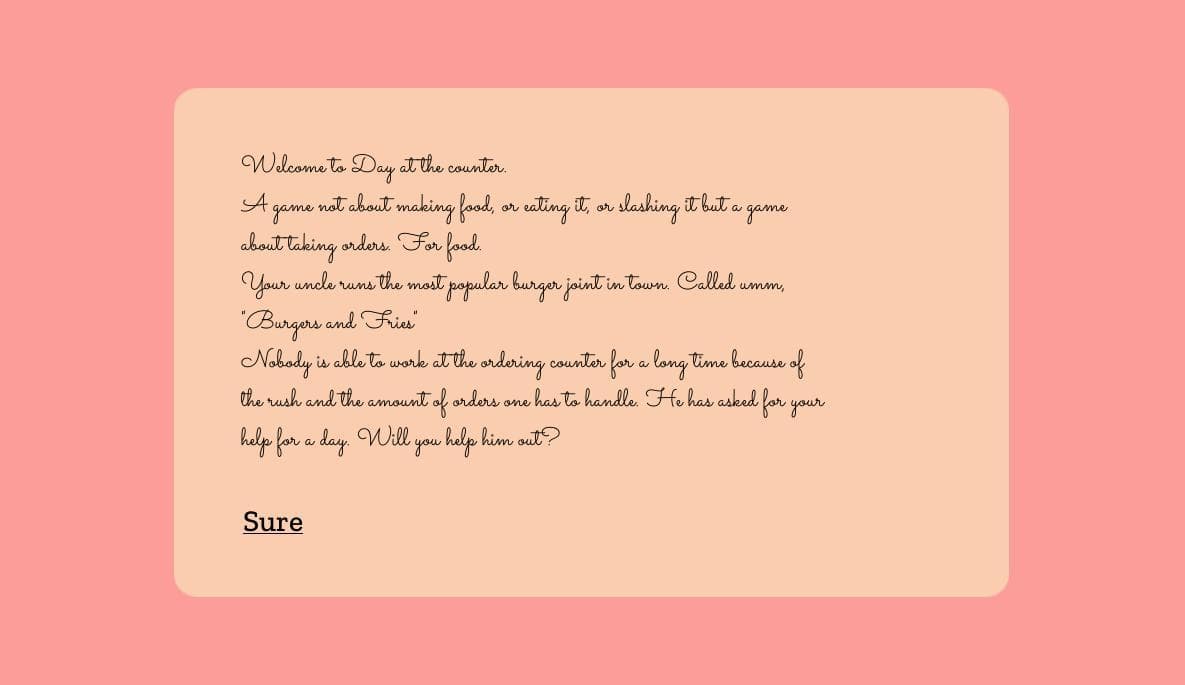 Welcome to Day at the counter.
A game not about making food, or eating it, or slashing it but a game
about taking orders. For food.
Your uncle runs the most popular burger joint in town. Called umm,
"Burgers and Fries"
Nobody is able to work at the ordering counter for a long time because of
the rush and the amount of orders one has to handle. He has asked for your
help for a day. Will you help him out?
Sure